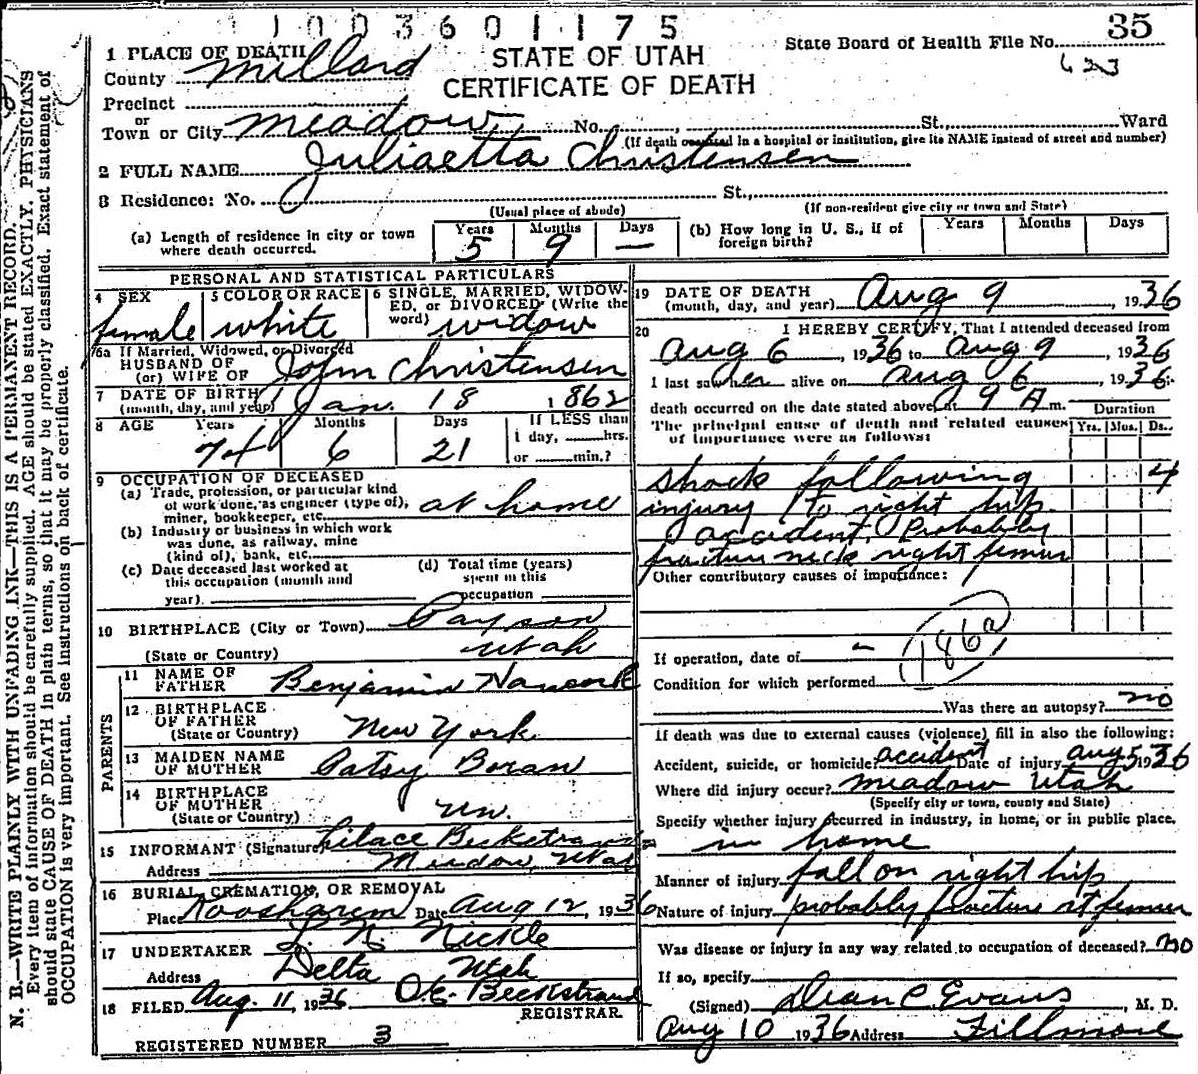 1003601175
35
1 PLACE OF DEATH
STATE OF UTAH
State Board of Health File No.
623
County Millard
CERTIFICATE OF DEATH
Precinct
or
Town or City Meadow No. , St., Ward
(If death occurred in a hospital or institution, give its NAME instead of street and number)
2 FULL NAME Juliaetta Christensen
3 Residence: No. St.,
(Usual place of abode) (If non-resident give city or town and State)
(a) Length of residence in city or town where death occurred. Years 5 Months 9 Days —
(b) How long in U. S., if of foreign birth? Years Months Days
PERSONAL AND STATISTICAL PARTICULARS
4 SEX female
5 COLOR OR RACE white
6 SINGLE, MARRIED, WIDOWED, or DIVORCED (Write the word) widow
6a If Married, Widowed, or Divorced
HUSBAND OF
(or) WIFE OF John Christensen
7 DATE OF BIRTH
(month, day, and year) Jan. 18 1862
8 AGE Years 74 Months 6 Days 21 If LESS than
1 day, hrs.
or min.?
9 OCCUPATION OF DECEASED
(a) Trade, profession, or particular kind
of work done, as engineer (type of),
miner, bookkeeper, etc. at home
(b) Industry or business in which work
was done, as railway, mine
(kind of), bank, etc.
(c) Date deceased last worked at
this occupation (month and
year).
(d) Total time (years)
spent in this
occupation
10 BIRTHPLACE (City or Town) Payson
(State or Country) Utah
PARENTS
11 NAME OF
FATHER Benjamin Hancock
12 BIRTHPLACE
OF FATHER
(State or Country) New York
13 MAIDEN NAME
OF MOTHER Patsy Boran
14 BIRTHPLACE
OF MOTHER
(State or Country) Un.
15 INFORMANT (Signature) Beckstrand
Address Meadow, Utah
16 BURIAL, CREMATION, OR REMOVAL
Place Koosharem Date Aug 12, 1936
17 UNDERTAKER L. N. Nickle
Address Delta Utah
18 FILED Aug. 11, 1936 O.C. Beckstrand
REGISTRAR
REGISTERED NUMBER 3
19 DATE OF DEATH
(month, day, and year) Aug 9, 1936
20 I HEREBY CERTIFY, That I attended deceased from
Aug 6, 1936 to Aug 9, 1936
I last saw her alive on Aug 6, 1936
death occurred on the date stated above, at 9 A m.
The principal cause of death and related causes
of importance were as follows:
Duration
Yrs. Mos. Ds.
shock following 4
injury to right hip.
accident. Probably
fracture neck right femur
Other contributory causes of importance:
186a
If operation, date of –
Condition for which performed
Was there an autopsy? no
If death was due to external causes (violence) fill in also the following:
Accident, suicide, or homicide accident Date of injury Aug 5 1936
Where did injury occur? Meadow Utah
(Specify city or town, county and State)
Specify whether injury occurred in industry, in home, or in public place.
in home
Manner of injury fall on right hip
Nature of injury probably fracture rt femur
Was disease or injury in any way related to occupation of deceased? no
If so, specify
(Signed) Dean C Evans, M. D.
Aug 10 1936 Address Fillmore
N. B.—WRITE PLAINLY WITH UNFADING INK—THIS IS A PERMANENT RECORD.
Every item of information should be carefully supplied. AGE should be stated EXACTLY. PHYSICIANS
should state CAUSE OF DEATH in plain terms, so that it may be properly classified. Exact statement of
OCCUPATION is very important. See instructions on back of certificate.